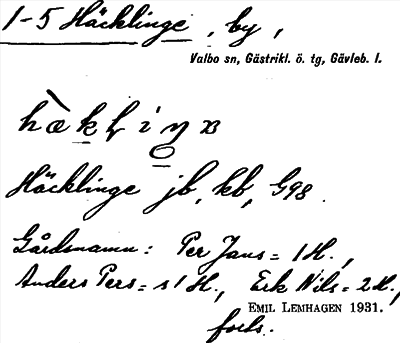 1-5 Häcklinge, by,
Valbo sn, Gästrikl. ö. tg, Gävleb. l.
Häcklinge jb, kb, G98.
Gårdsnamn: Per Jans = 1 H.,
Anders Pers = s1 H., Erk Nils = 2 H.,
EMIL LEMHAGEN 1931.
forts.